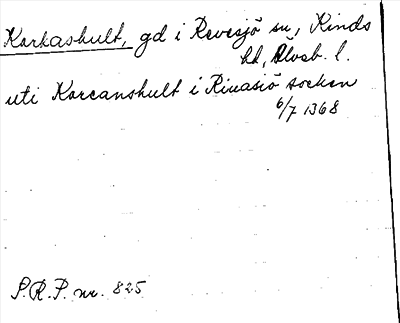 Karkashult, gd i Revesjö sn, Kinds
hd, Älvsb. l.
uti Karcanshult i Riuasiö socken
6/7 1368
S.R.P. nr. 825